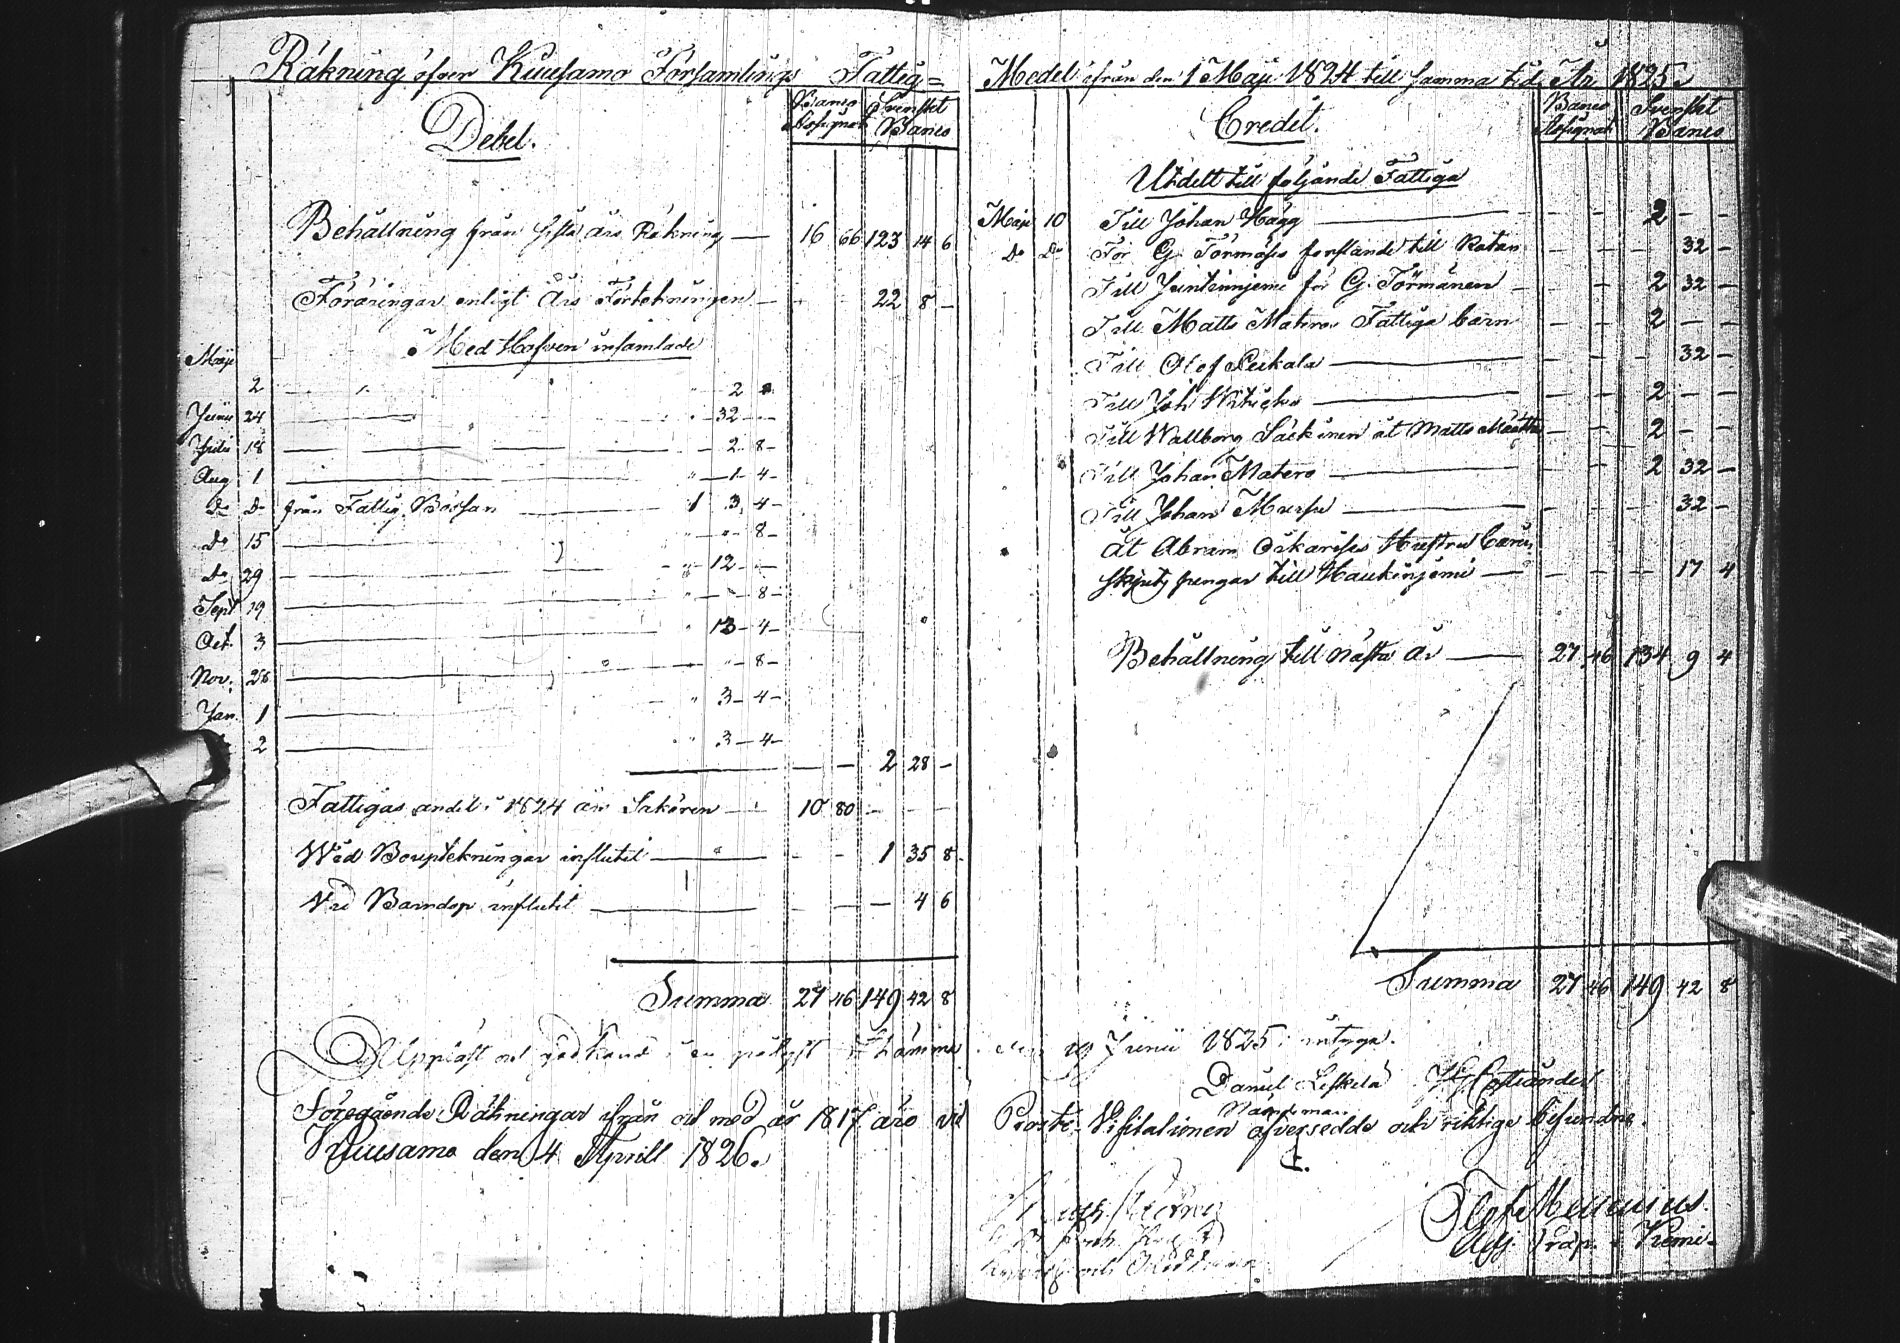 Räkning öfver Kuusamo Församlings Fattig=
Debet.
Banco Assignat Svenskt Banco
Behållning från sista års Räkning — 16 66 123 14 6
Föräringar enligt Års Förtekningen — 22 8 —
Med Hofven insamlade
Maji
2 2
Junii 24 — 32 —
Julii 18 — 2 8 —
Aug 1 — 1 4 —
Do Do från Fattig Bössan — 1 3 4 —
Do 15 — 8 —
Do 29 — 12 —
Sept 19 — 8 —
Oct. 3 — 13 4 —
Nov. 28 — 8 —
Jan. 1 — 3 4 —
2 — 3 — 4 —
— — 2 28 —
Fattigas andel i 1824 års Sakören — 10 80 — — —
Wid Bouptekningar influtit — — — 1 35 8
Vid Barndop influtit — — — — 4 6
Summa 27 46 149 42 8
Medel ifrån den 1 Maji 1824 till samma tid År 1825.
Credit.
Banco Assignat Svenskt Banco
Utdelt till följande Fattiga
Maji 10 Till Johan Hägg — — — 2 — —
Do Do För G. Törmäs forslande till Rätan — — — 32 —
Till Juntinnjemi för G. Törmänen — — 2 32 —
Till Matts Matero Fattiga barn — — 2 — —
Till Olof Peikala — — — — 32 —
Till Joh — — — 2 — —
Till Wallborg Säckinen åt Matts Määtta — — 2 — —
Till Johan Matero — — — 2 32 —
Till Johan — — — 32 —
åt Abram Oikarises Hustru
skjuts pengar till Haukinjemi — — — — 17 4
Behållning till nästa år — 27 46 134 9 4
Summa 27 46 149 42 8
Uppläst och godkänd i en pålyst Sockenstämma den 19 Junii 1825; intygar.
Daniel Leskelä
Nämdeman
Föregående Räkningar ifrån och med år 1817 äro vid Prosts-Visitationen öfversedde och riktige befundne.
Kuusamo den 4 Aprill 1826.
Olof Mellenius.
Adj. i Kemi